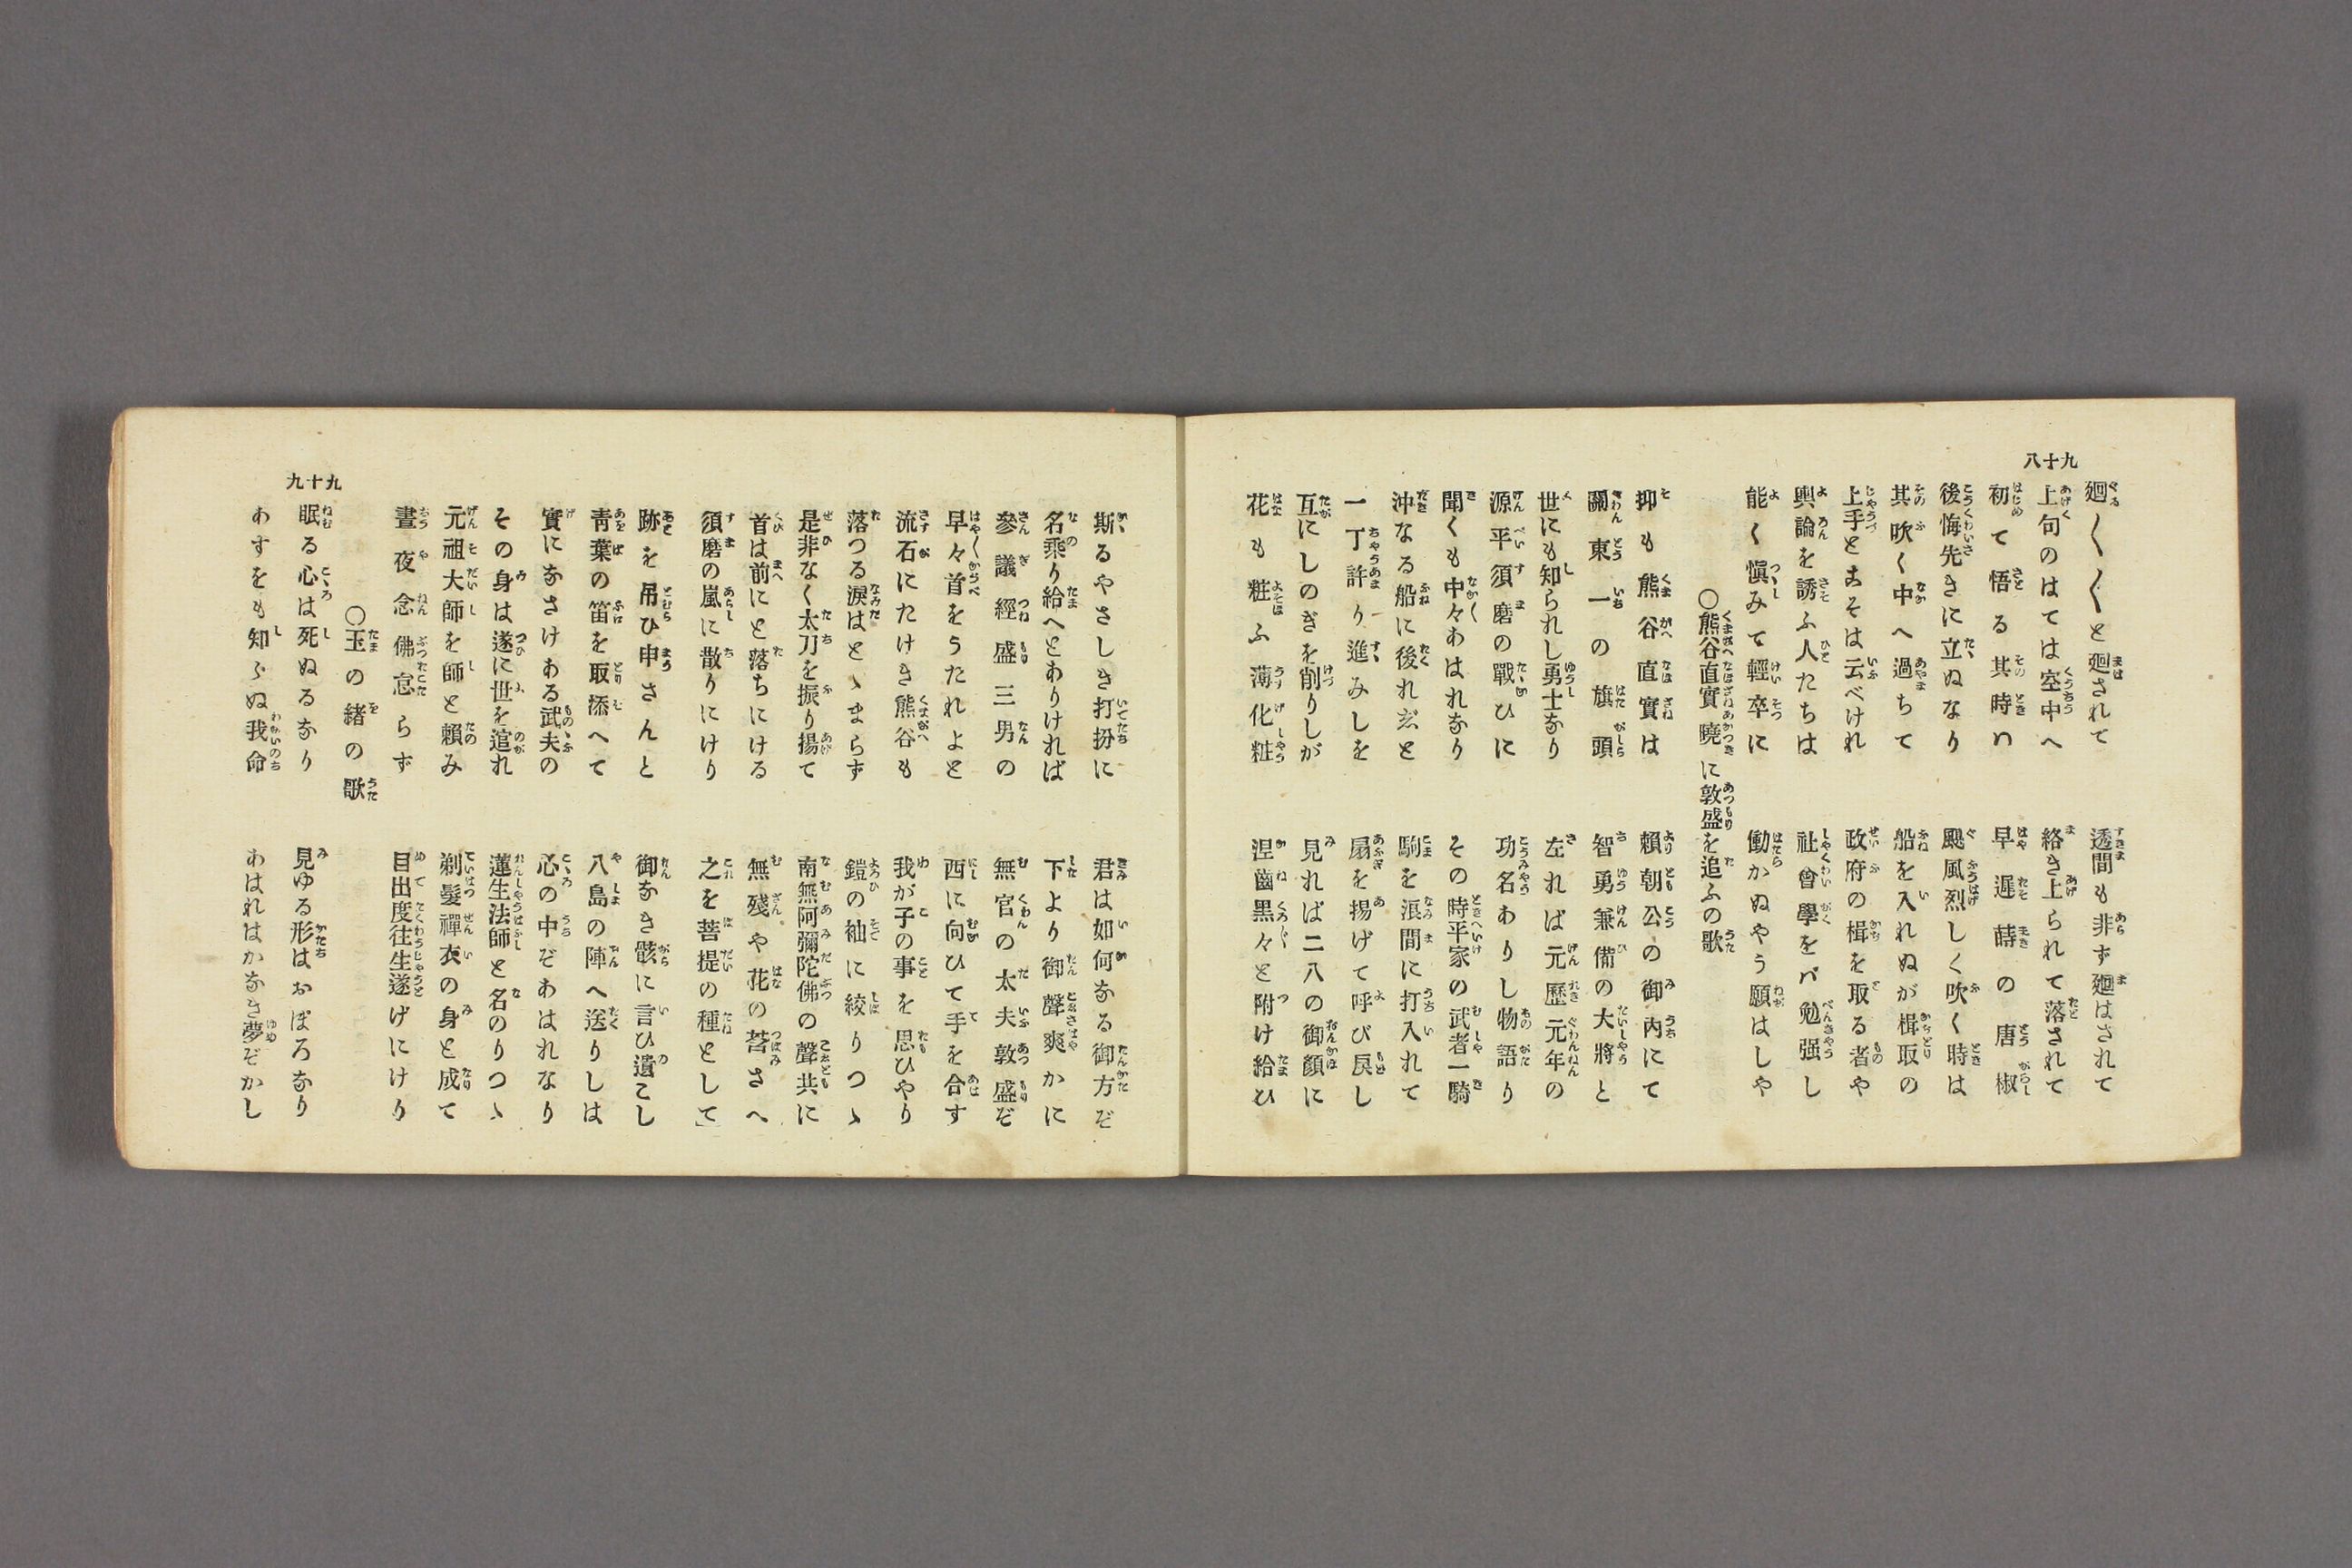 八十九
廻る〱〱と廻されて　透間も非ず廻はされて
上句のはては空中へ　絡き上られて落されて
初て悟る其時ハ　早遅蒔の唐椒
後悔先きに立ぬなり　颶風烈しく吹く時は
其吹く中へ過ちて　船を入れぬが楫取の
上手とまそは云べけれ　政府の楫を取る者や
輿論を誘ふ人たちは　社會學をバ勉强し
能く愼みて輕卒に　働かぬやう願はしや
○熊谷直實曉に敦盛を追ふの歌
抑も熊谷直實は　賴朝公の御内にて
關東一の旗頭　智勇兼備の大將と
世にも知られし勇士なり　左れば元歷元年の
源平須磨の戰ひに　功名ありし物語り
聞くも中々あはれなり　その時平家の武者一騎
沖なる船に後れじと　駒を浪間に打入れて
一丁許り進みしを　扇を揚げて呼び戾し
互にしのぎを削りしが　見れば二八の御顏に
花も粧ふ薄化粧　涅齒黑々と附け給ひ
九十九
斯るやさしき打扮に　君は如何なる御方ぞ
名乘り給へとありければ　下より御聲爽かに
參議經盛三男の　無官の太夫敦盛ぞ
早々首をうたれよと　西に向ひて手を合す
流石にたけき熊谷も　我が子の事を思ひやり
落つる淚はとゝまらず　鎧の袖に絞りつゝ
是非なく太刀を振り揚て　南無阿彌陀佛の聲共に
首は前にと落ちにける　無殘や花の莟さへ
須磨の嵐に散りにけり　之を菩提の種として」
跡を吊ひ申さんと　御なき骸に言ひ遺こし
靑葉の笛を取添へて　八島の陣へ送りしは
實になさけある武夫の　心の中ぞあはれなり
その身は遂に世を遁れ　蓮生法師と名のりつゝ
元祖大師を師と賴み　剃髮禪衣の身と成て
晝夜念佛怠らず　目出度往生遂げにけり
○玉の緒の歌
眠る心は死ぬるなり　見ゆる形はおぼろなり
あすをも知らぬ我命　あはれはかなき夢ぞかし